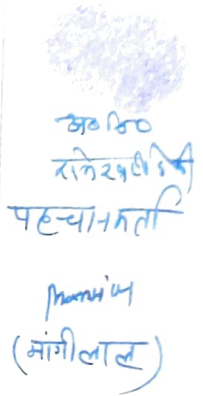 अ०नि०
राजेश्वरी देवी
पहचानकर्ता
(मांगीलाल)